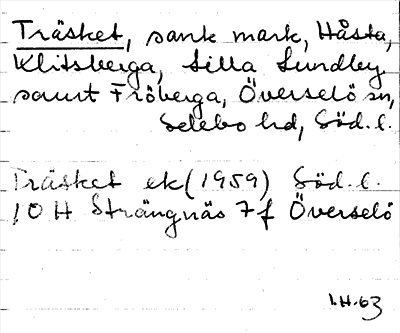 Träsket, sank mark, Håsta,
Klitsberga, Lilla Lundby
samt Fröberga, Överselö sn,
Selebo hd, Söd. l.
Träsket ek (1959) Söd. l.
10 H Strängnäs 7 f Överselö
I.H. 63